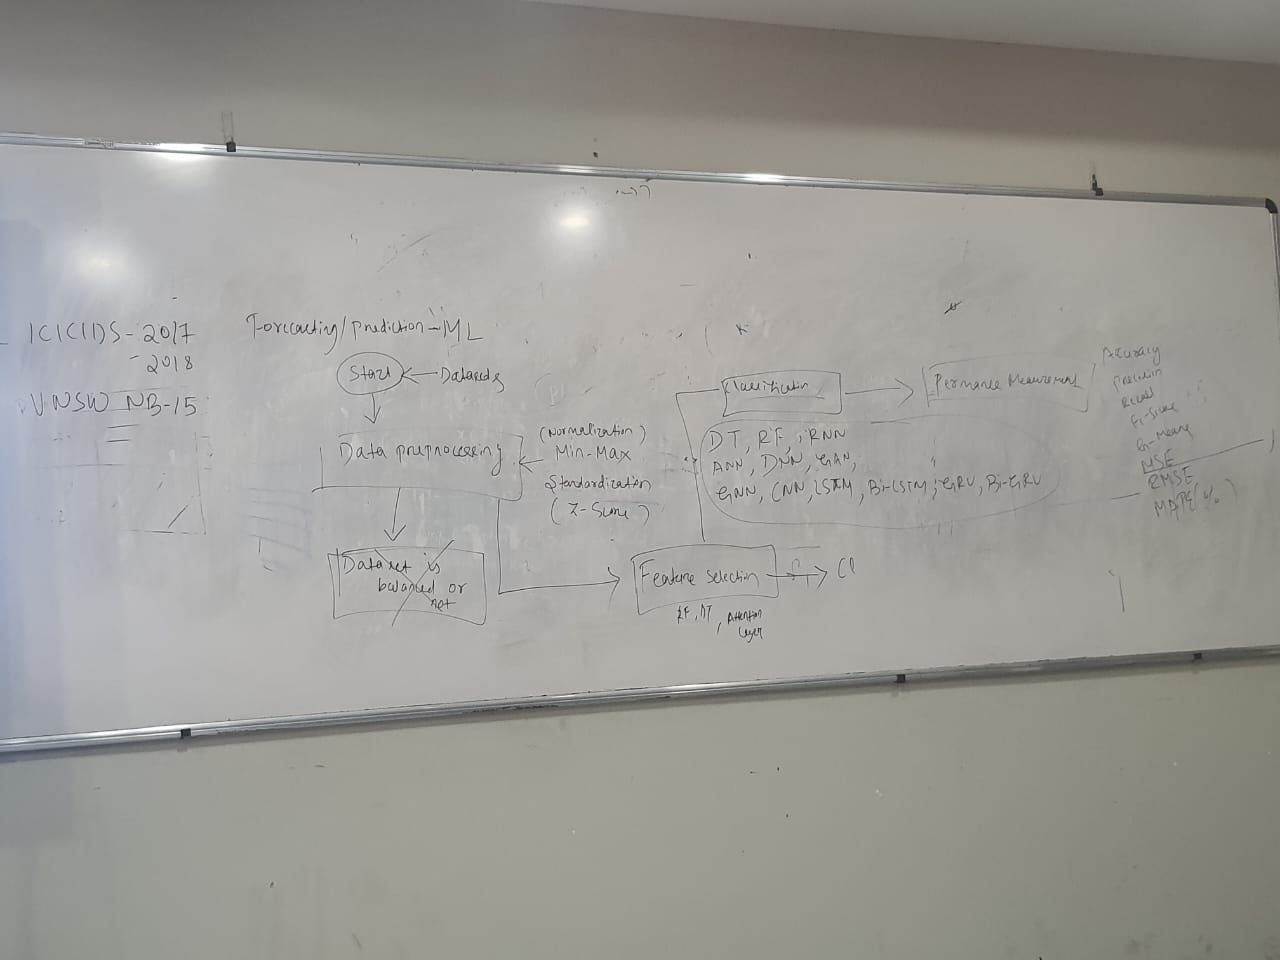 ICICIDS-2017
-2018
UNSW NB-15
Forecasting/prediction-ML
Start
Datasets
Data preprocessing
(Normalization)
Min-Max
Standardization
(Z-Score)
Dataset is
balanced or
not
Feature selection
RF, DT, Attention
Layer
Cl
Classification
DT, RF, RNN
ANN, DNN, GAN,
GNN, CNN, LSTM, Bi-LSTM, GRU, Bi-GRU
Permance Measurement
Accuracy
Precision
Recall
F1-Score
G-Means
MSE
RMSE
MAPE(%)